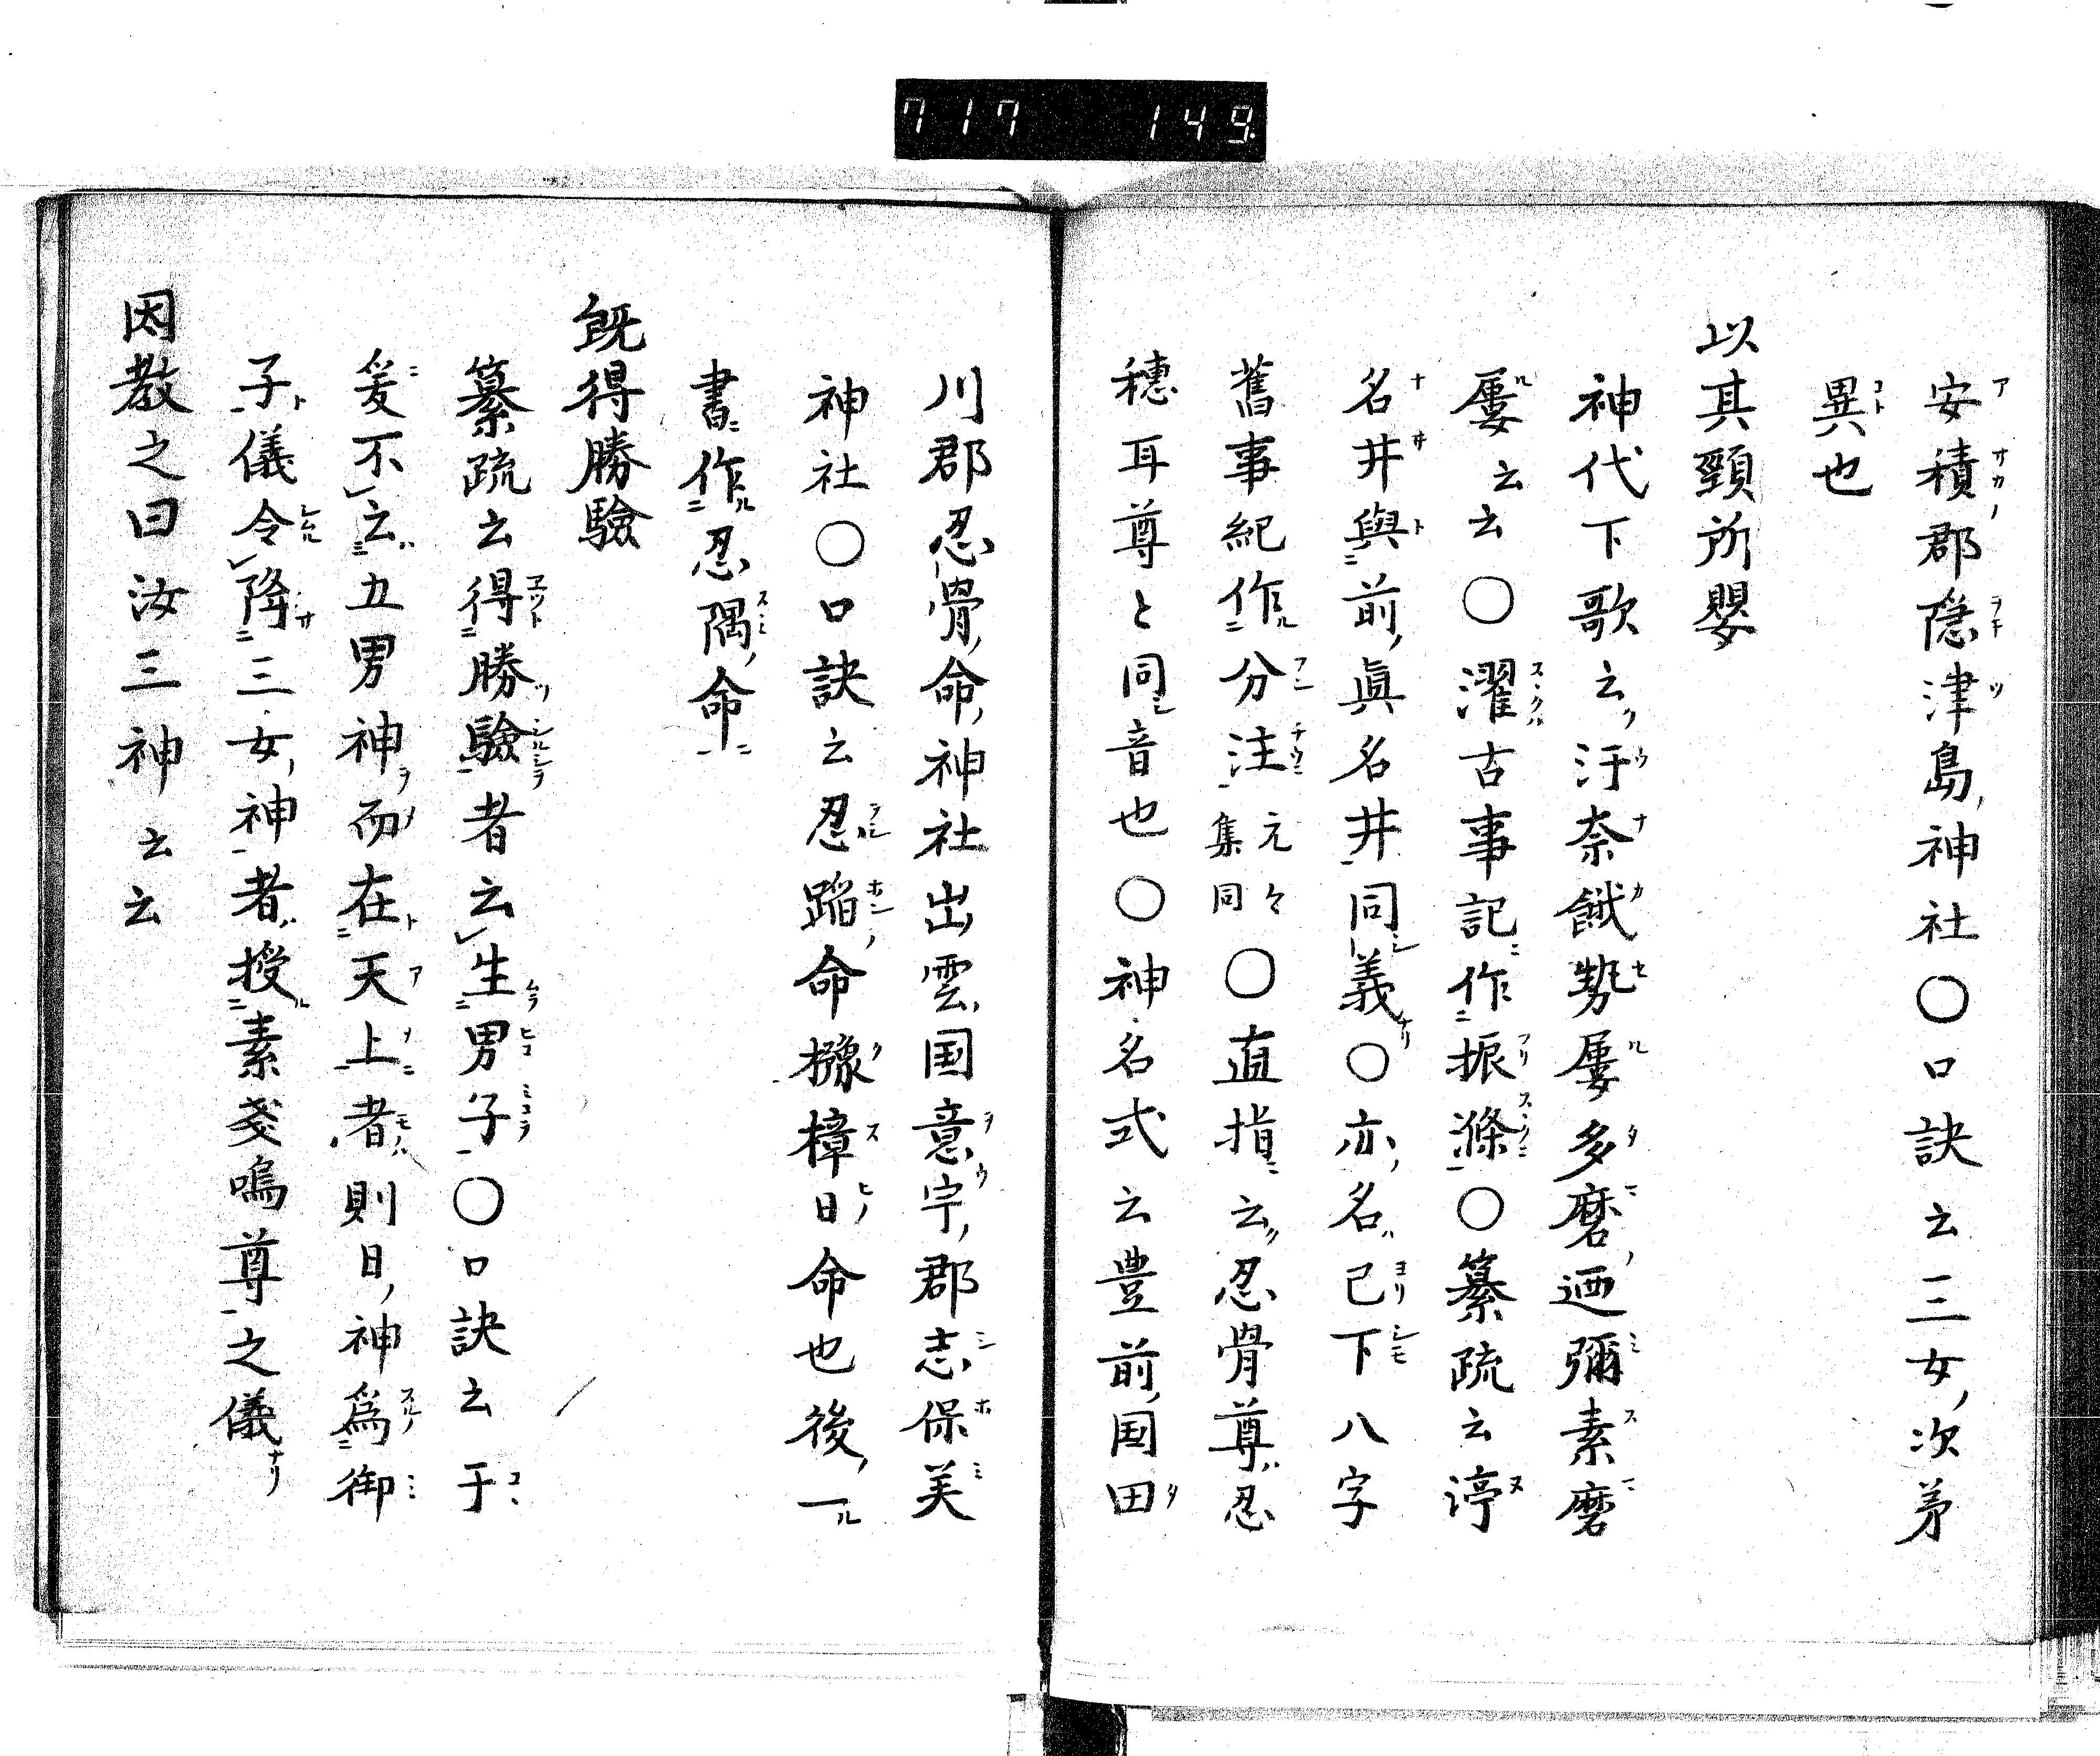 717 149
安積郡隠津島神社〇口訣云三女次苐
異也
以其頸所嬰
神代下歌云汙奈餓勢屢多磨廼彌素磨
屢云云〇濯古事記作振滌〇纂疏云渟
名井與前眞名井同義〇亦名已下八字
舊事紀作分注元々集同〇直指云忍骨尊忍
穗耳尊と同音也〇神名式云豊前国田
川郡忍骨命神社出雲国意宇郡志保美
神社〇口訣云忍蹈命櫲樟日命也後一
書作忍隅命
既得勝驗
纂疏云得勝驗者云生男子〇口訣云于
爰不云五男神而在天上者則日神爲御
子儀令降三女神者授素戔嗚尊之儀
因教之曰汝三神云云